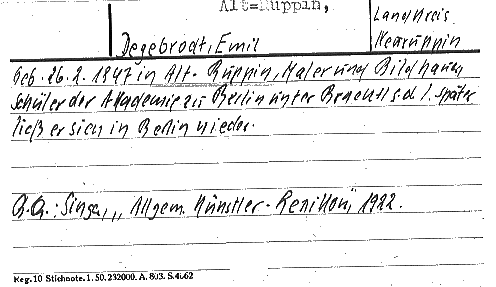 Alt=Ruppin,
Landkreis
Neuruppin
Degebrodt, Emil
Geb. 26.2.1847 in Alt-Ruppin, Maler und Bildhauer
Schüler der Akademie zu Berlin unter s.d. 1. später
ließ er sich in Berlin nieder.
Q.Q.: Singer, „Allgem. Künstler-Lexikon", 1922.
Reg. 10 Stichnote. 1. 50. 232000. A. 803. S. 4662